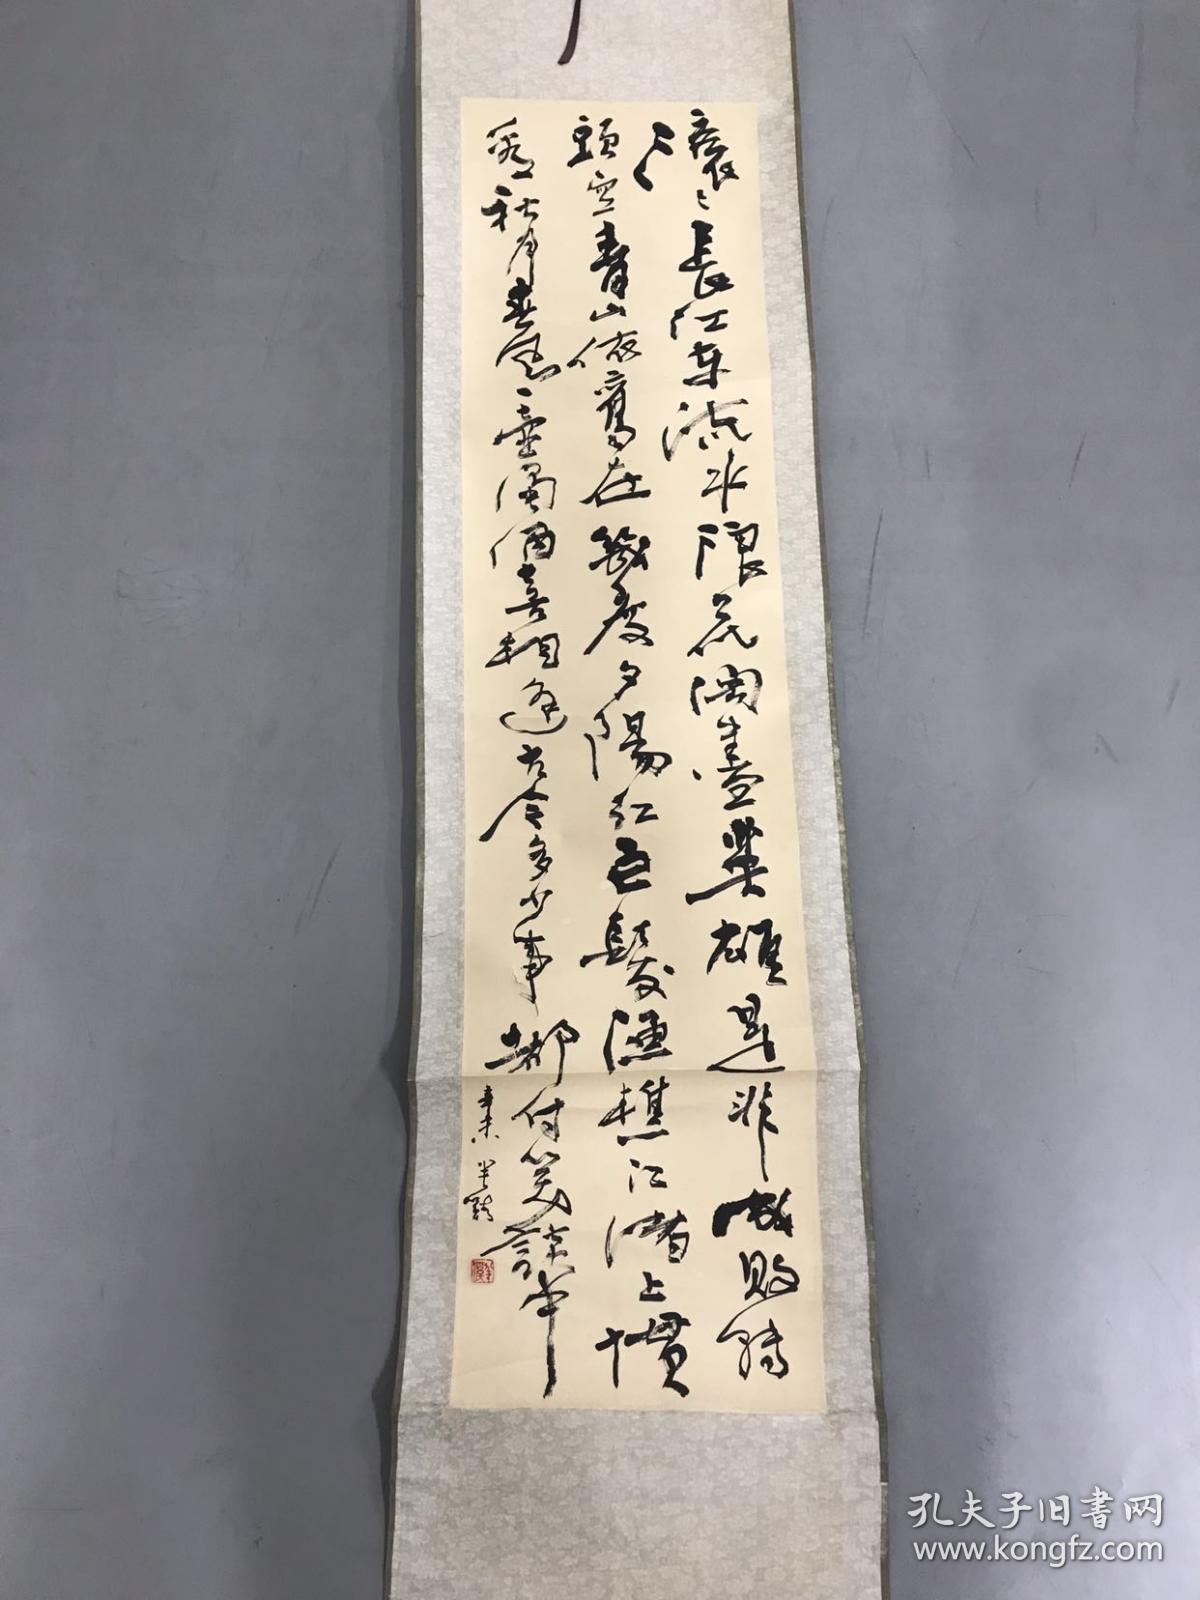 滚〻長江東流水浪花淘盡英雄是非成敗轉
頭空青山依舊在幾度夕陽紅白髮漁樵江渚上慣
看秋月春風一壺濁酒喜相逢古今多少事都付笑談中
辛未
孔夫子旧书网
www.kongfz.com